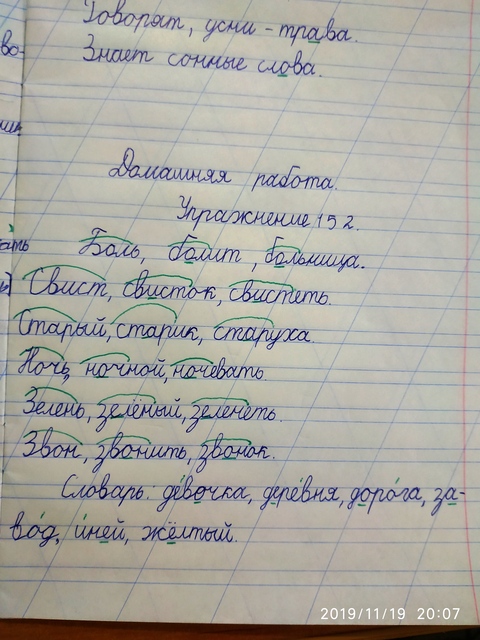 Говорят, усни - трава.
Знает сонные слова.
Домашняя работа.
Упражнение 152.
Боль, болит, больница.
Свист, свисток, свистеть.
Старый, старик, старуха.
Ночь, ночной, ночевать.
Зелень, зелёный, зеленеть.
Звон, звонить, звонок.
Словарь: девочка, деревня, дорога, за-
вод, иней, жёлтый.
2019/11/19 20:07